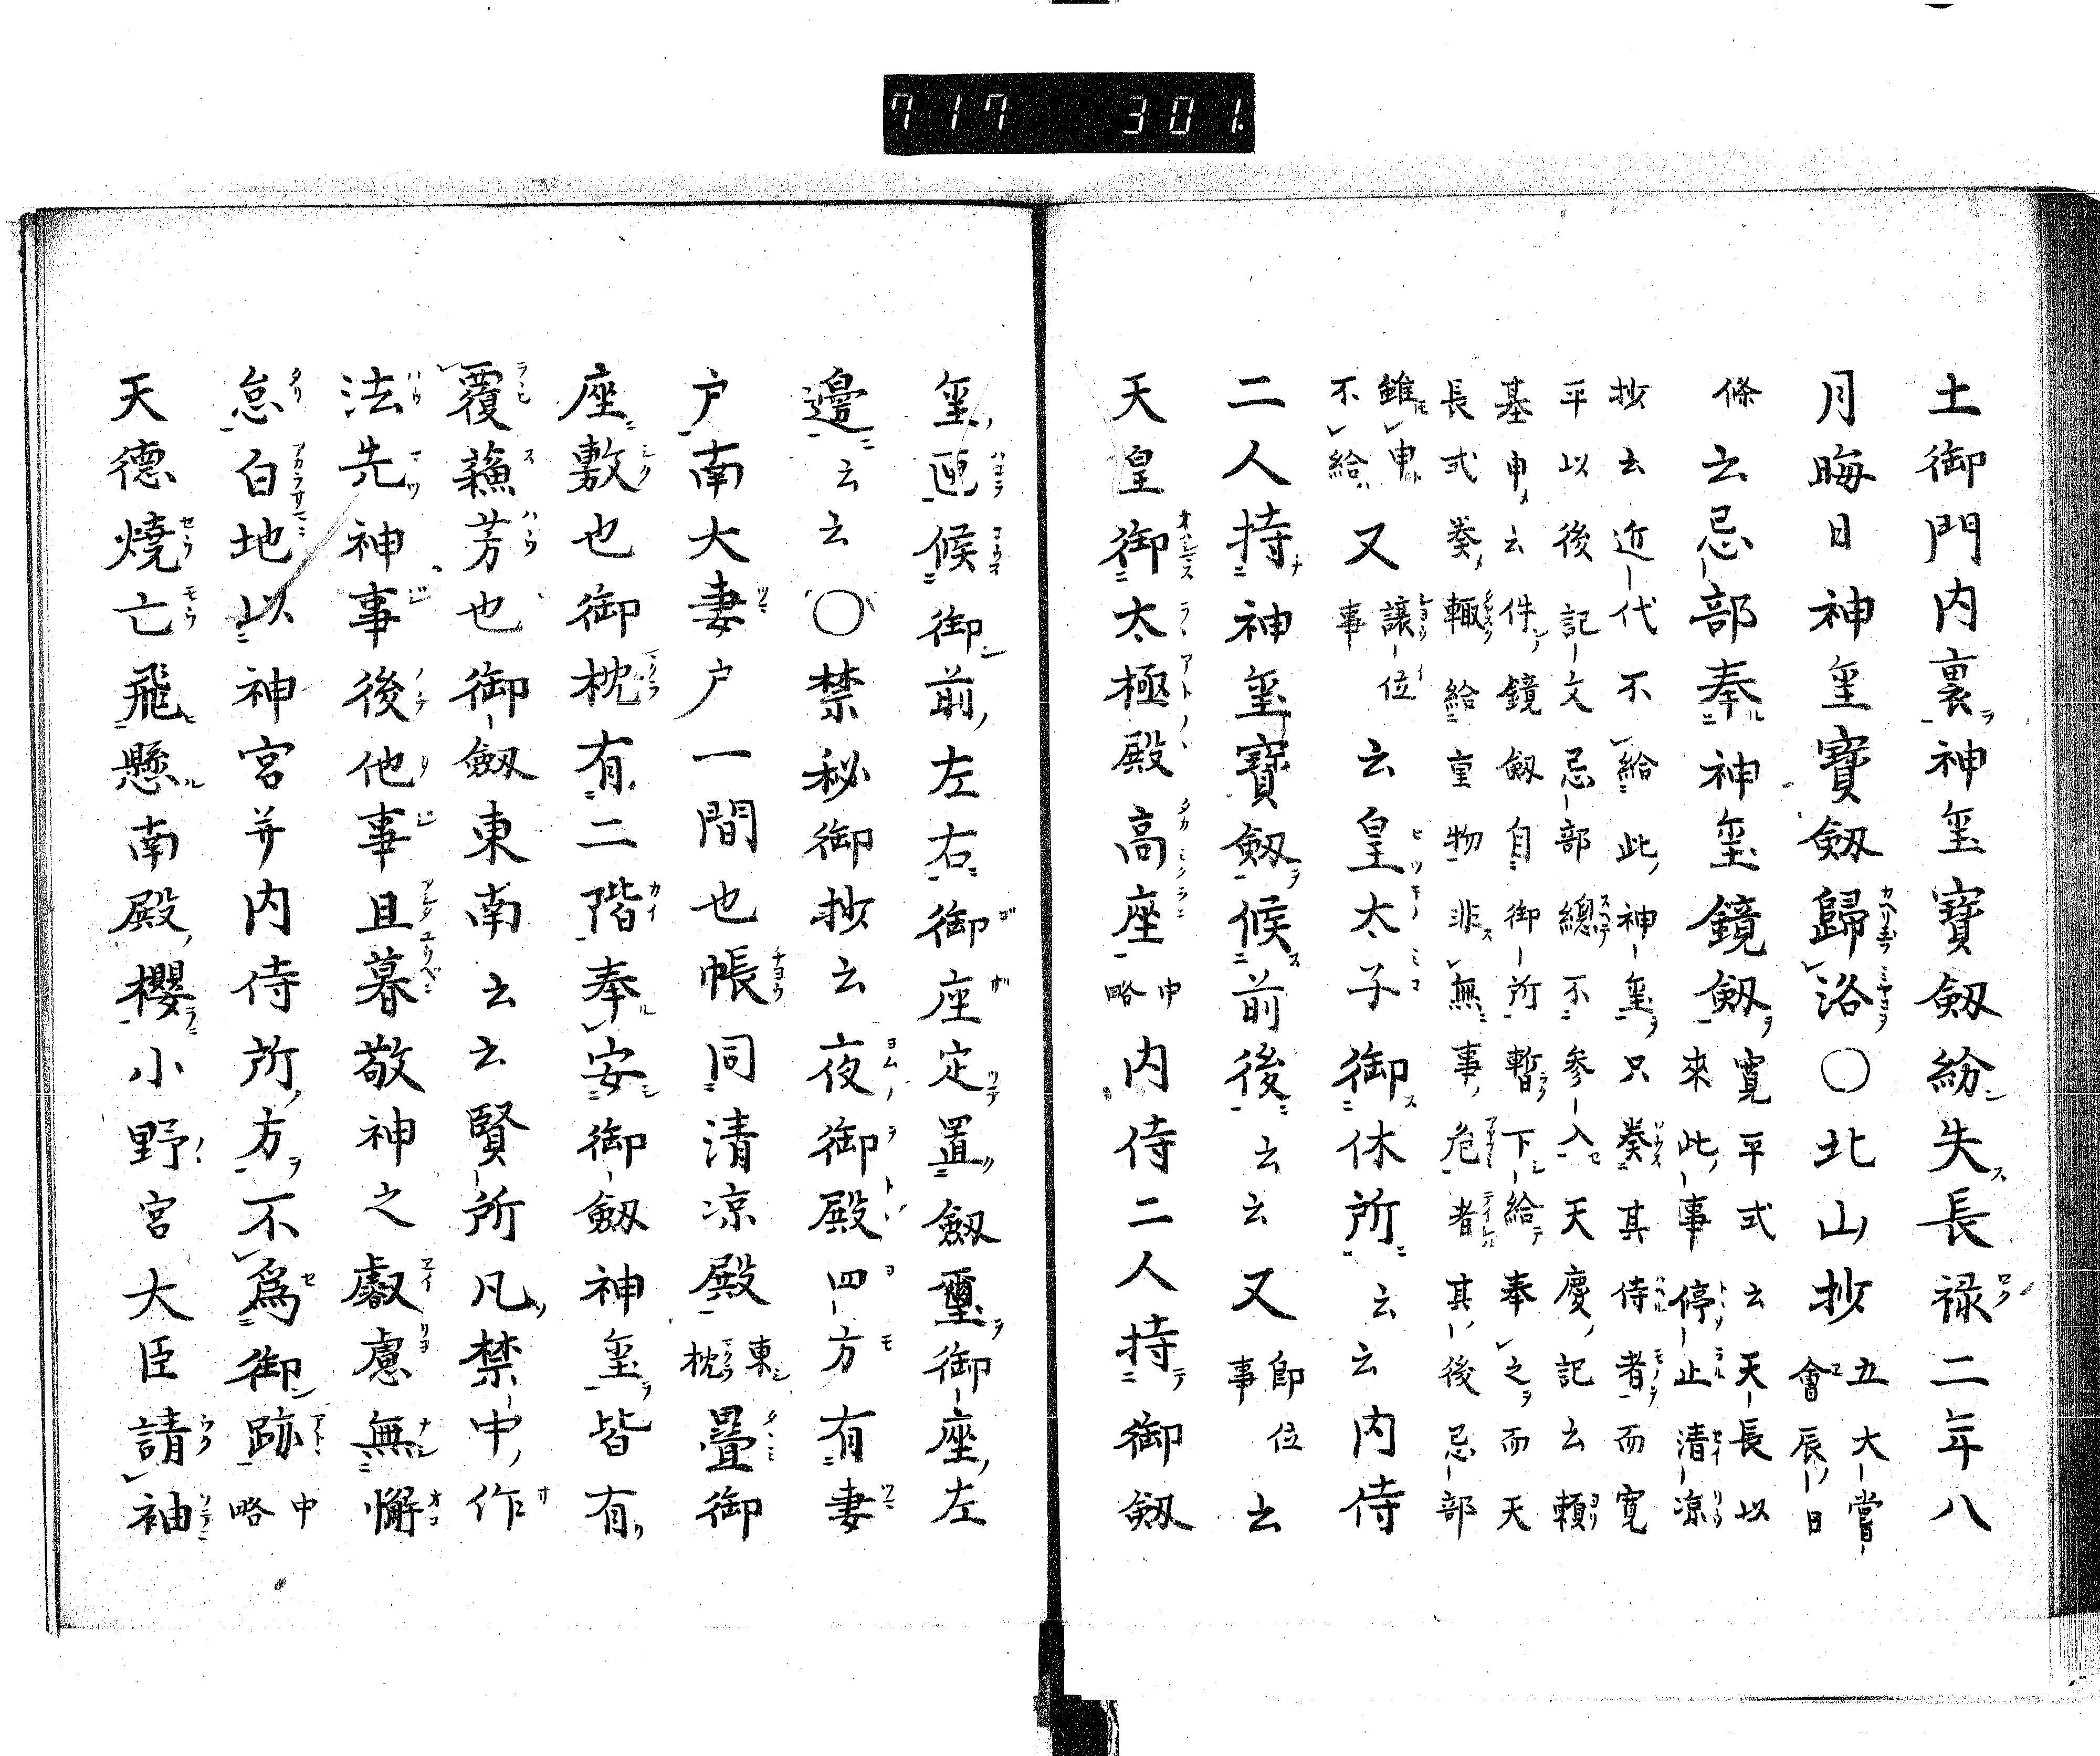 717 301.
土御門内裏神璽寶劔紛失長禄二年八
月晦日神璽寶劔歸洛〇北山抄五大嘗會辰日
條云忌部奉神璽鏡劔寛平式云天長以來此事停止清凉
抄云近代不給此神璽只奏其侍者而寛
平以後記文忌部總不參入天慶記云頼
基申云件鏡劔自御所暫下給奉之而天
長式奏輙給重物非無事危者其後忌部
雖申不給又讓位事云皇太子御休所云云内侍
二人持神璽寶劔候前後云云又即位事云
天皇御太極殿高座中略内侍二人持御劔
璽匣候御前左右御座定置劔璽御座左
邊云云〇禁秘御抄云夜御殿四方有妻
戸南大妻戸一間也帳同清凉殿東枕疊御
座敷也御枕有二階奉安御劔神璽皆有
覆蘓芳也御劔東南云云賢所凡禁中作
法先神事後他事且暮敬神之叡慮無懈
怠白地以神宮并内侍所方不爲御跡中略
天德燒亡飛懸南殿櫻小野宮大臣請袖